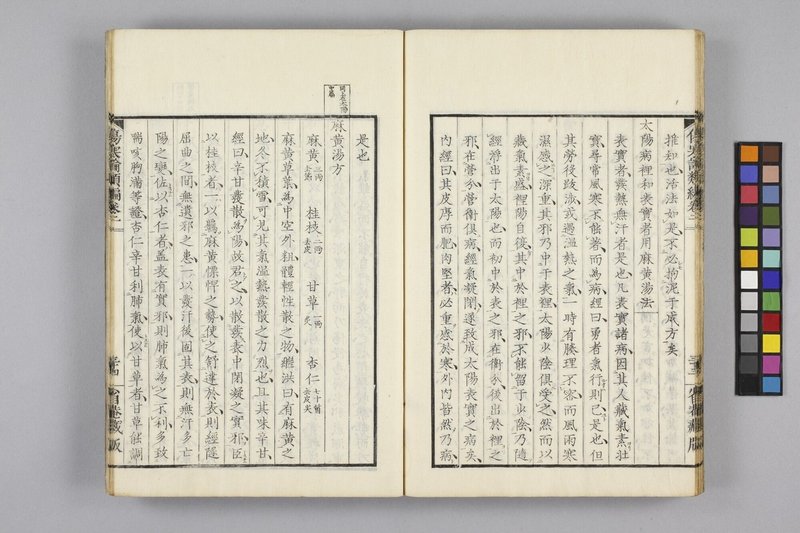 推知也活法如是不必拘泥于成方矣
太陽病裡和表實者用麻黃湯法
表實者發熱無汗者是也凡表實諸病因其人藏氣素壯
實尋常風寒不能著而為病經曰勇者氣行則已是也但
其勞後跋涉或遇溫熱之氣一時有腠理不密而風雨寒
濕感之深重其邪乃中于表裡太陽少陰俱受之然而以
藏氣素盛裡陽自從其中於裡之邪不能留于少陰乃隨
經將出于太陽也而初中於表之邪在衛分後出於裡之
邪在營分營衛俱病經氣凝閉遂致成太陽表實之病矣
內經曰其皮厚而肥肉堅者必重感於寒外內皆然乃病
是也
麻黃湯方
麻黃 三兩去節 桂枝 二兩去皮 甘草 一兩炙 杏仁 七十箇去皮尖
麻黃草葉為中空外粗體輕性散之物繼洪曰有麻黃之
地冬不積雪可見其氣溫熱發散之力烈也且其味辛甘
經曰辛甘發散為陽故君之以散發表中閉凝之實邪臣
以桂枝者一以驅麻黃慓悍之勢使之舒達於表則經隧
屈曲之間無遺邪之患一以發汗後固其表則無汗多亡
陽之變佐以杏仁者蓋表有實邪則肺氣為之不利多致
喘咳胸滿等證杏仁辛甘利肺氣使以甘草者甘草能調